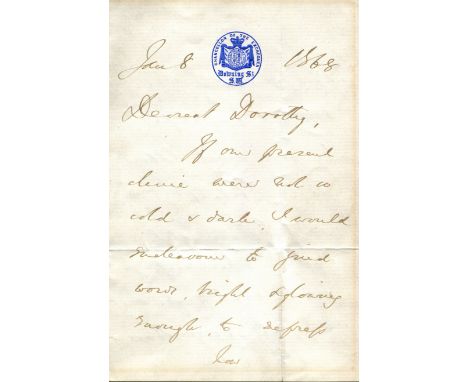 CHANCELLOR OF THE EXCHEQUER
Downing St
S.W.
Jan 8 1868
Dearest Dorothy,
If our present
clime were not so
cold & dark, I would
endeavour to find
words, bright & glowing
enough, to express
how